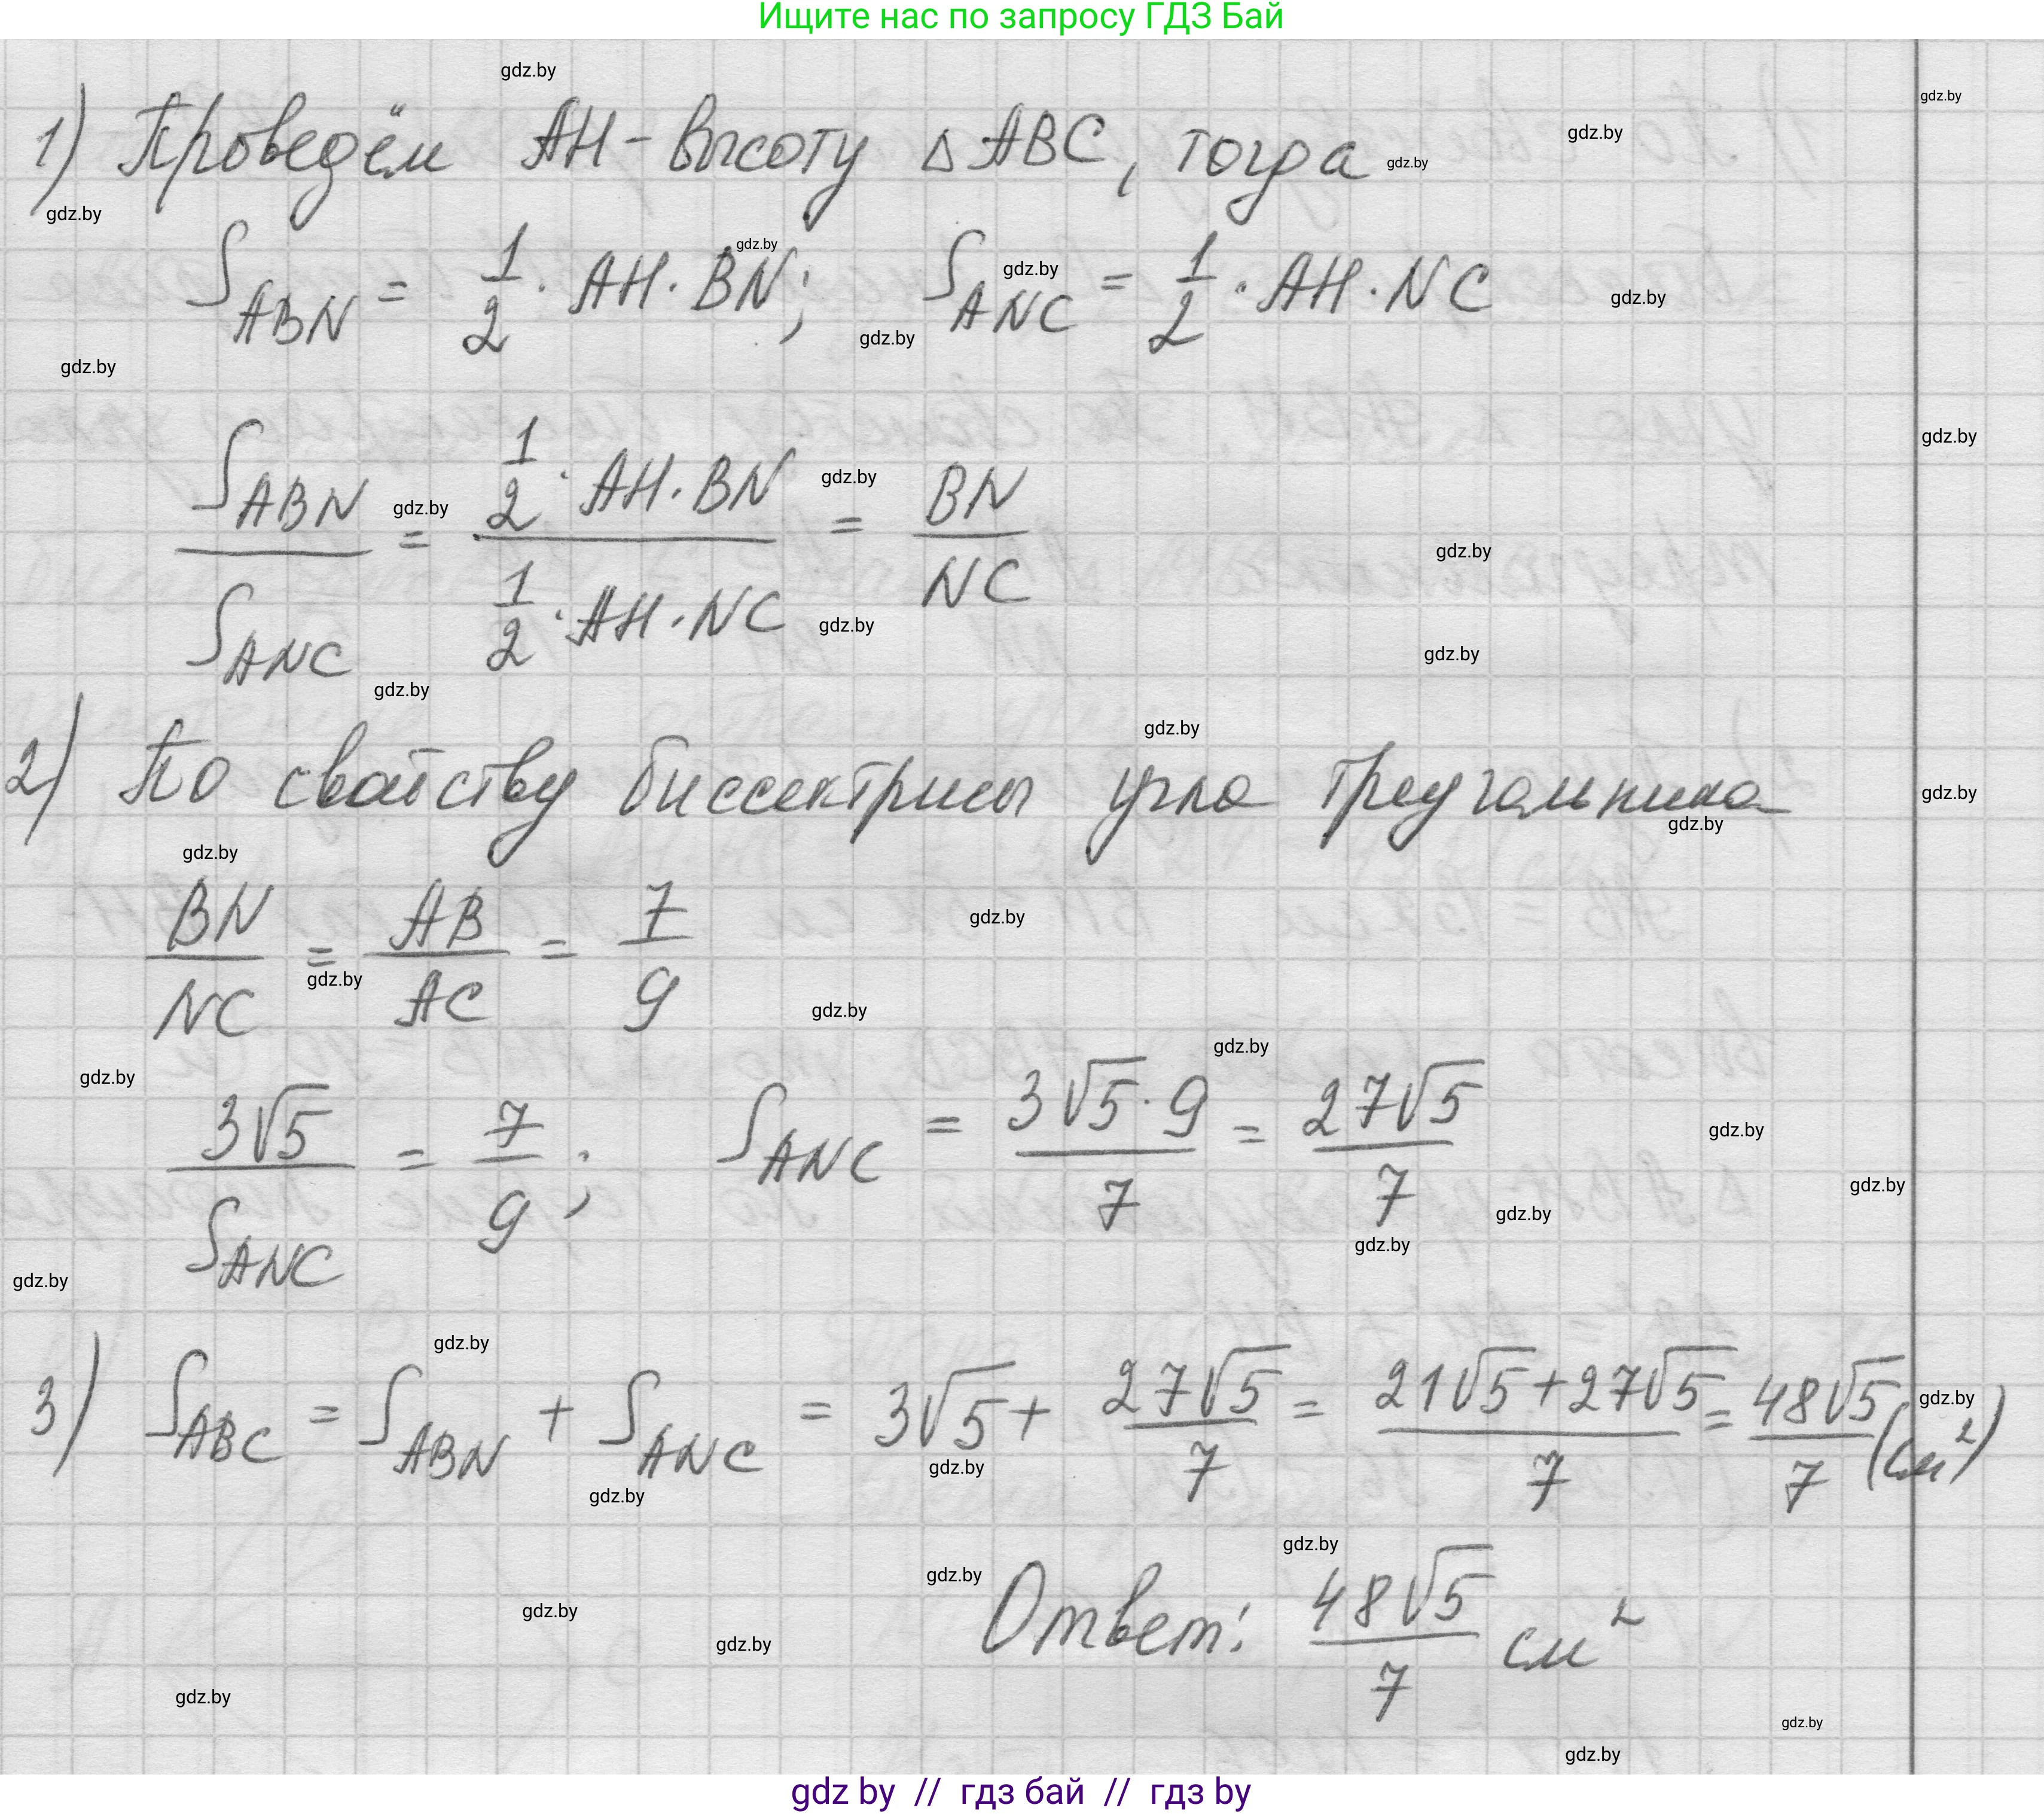 Ищите нас по запросу ГДЗ Бай
1) Проведём AH - высоту △ABC, тогда
S_ABN = 1/2 · AH · BN; S_ANC = 1/2 · AH · NC
S_ABN / S_ANC = (1/2 · AH · BN) / (1/2 · AH · NC) = BN / NC
2) По свойству биссектрисы угла треугольника
BN / NC = AB / AC = 7 / 9
3√5 / S_ANC = 7 / 9; S_ANC = 3√5 · 9 / 7 = 27√5 / 7
3) S_ABC = S_ABN + S_ANC = 3√5 + 27√5 / 7 = (21√5 + 27√5) / 7 = 48√5 / 7 (см²)
Ответ: 48√5 / 7 см²
gdz by // гдз бай // гдз by